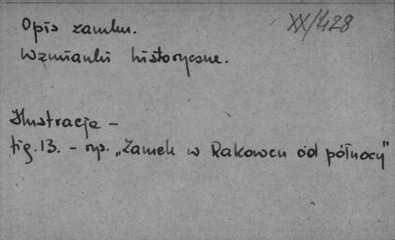 XX/428
Opis zamku.
Wzmianki historyczne.
Ilustracje –
fig. 13. – rys. „Zamek w Rakowcu od północy"